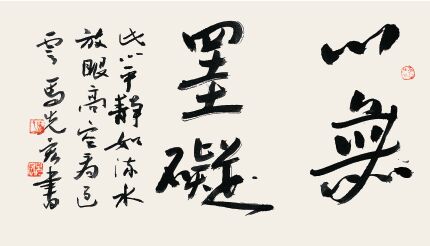 心無
罣礙
此心平靜如流水
放眼高空看過
雲 馬先書